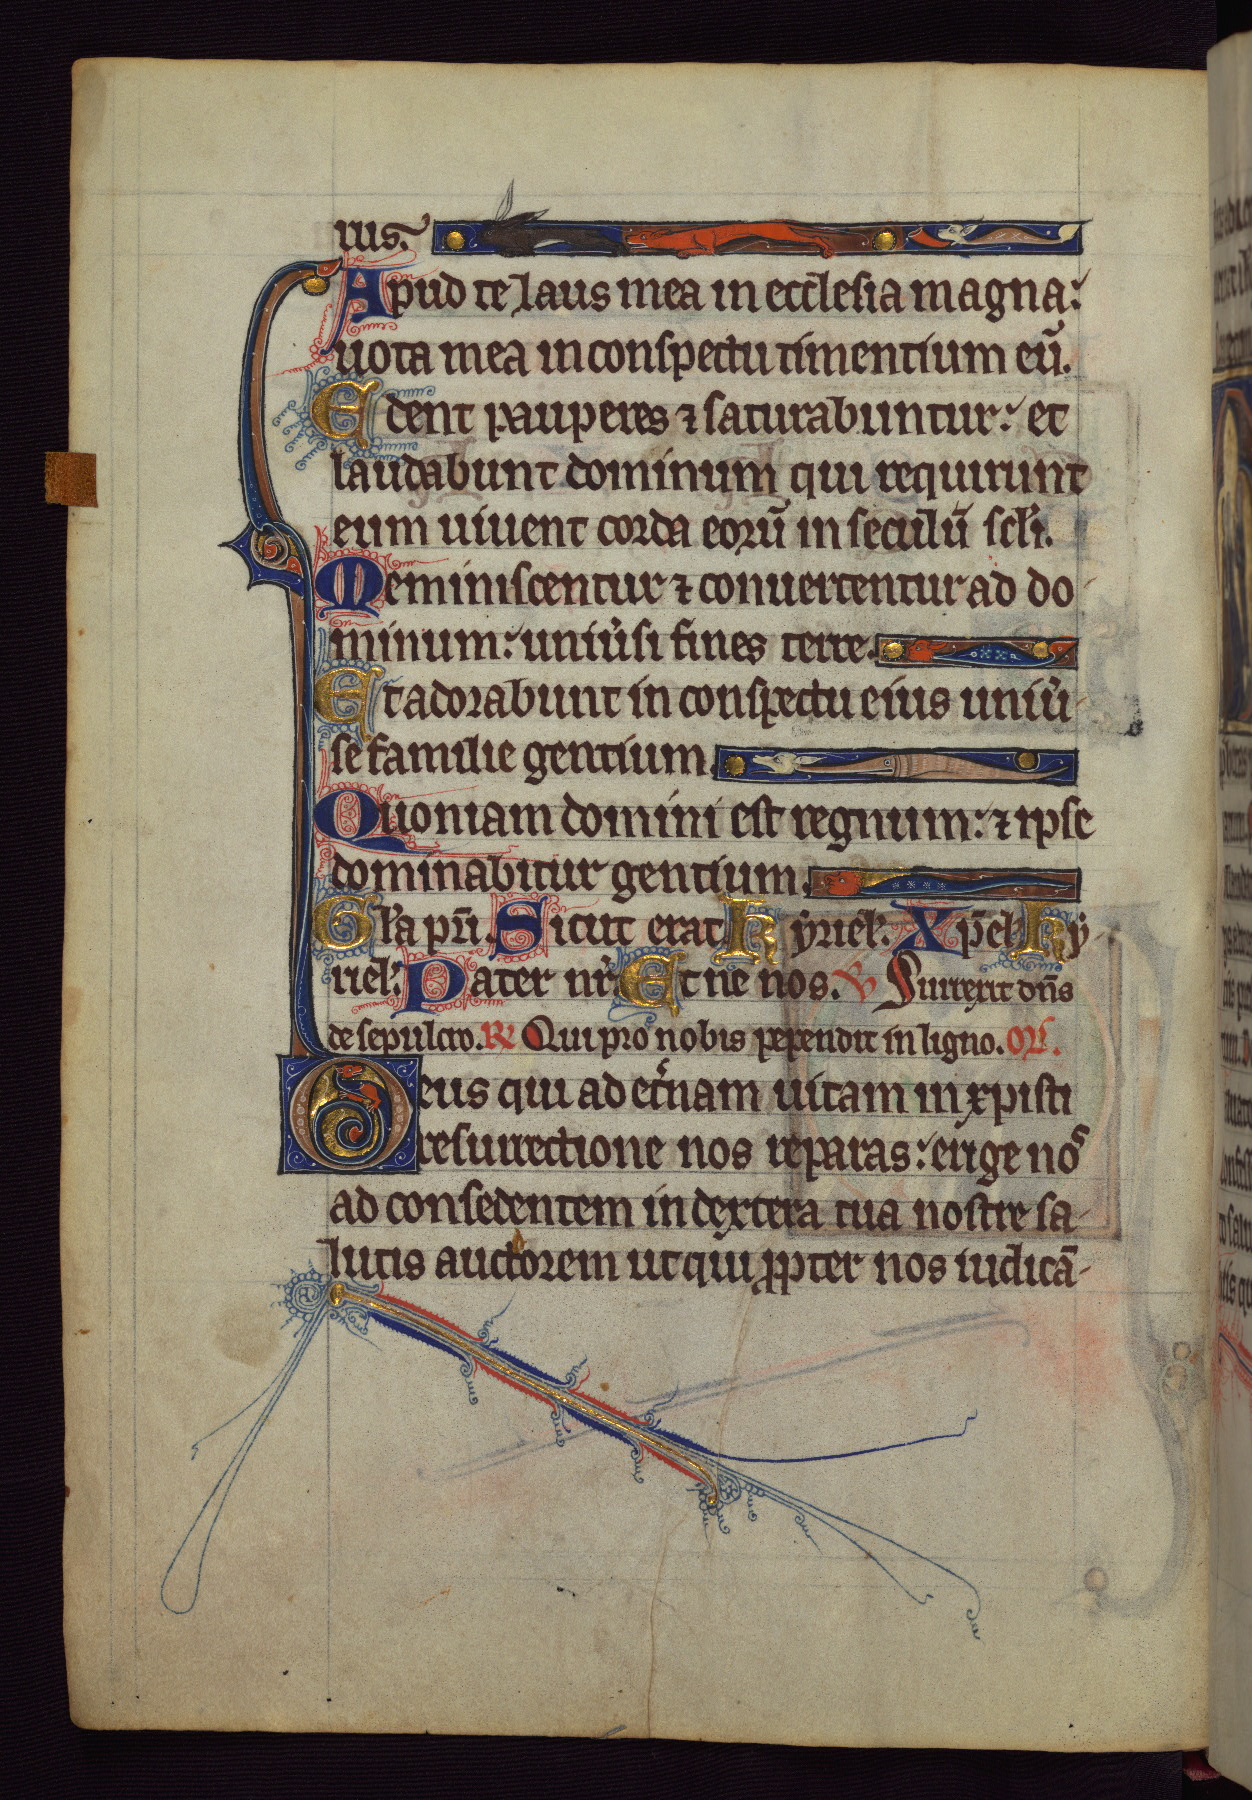 rus.
Apud te laus mea in ecclesia magna:
uota mea in conspectu timentium eū.
Edent pauperes ⁊ saturabuntur: et
laudabunt dominum qui requirunt
eum uiuent corda eorū in seculū scl̄i.
Reminiscentur ⁊ conuertentur ad do
minum: uniu̾si fines terre.
Et adorabunt in conspectu eius uniu̾
se familie gentium.
Quoniam domini est regnum: ⁊ ipse
dominabitur gentium.
Gl̄a pr̄i. Sicut erat kyriel̄. Xp̄el̄ ky
riel̄. Pater nr̄ Et ne nos. V Surrexit dn̄s
de sepulcro. R Qui pro nobis pependit in ligno. Or̄.
Deus qui ad et̾nam uitam in xpisti
resurrectione nos reparas: erige nos
ad consedentem in dextera tua nostre sa
lutis auctorem ut qui ꝓpter nos iudicā